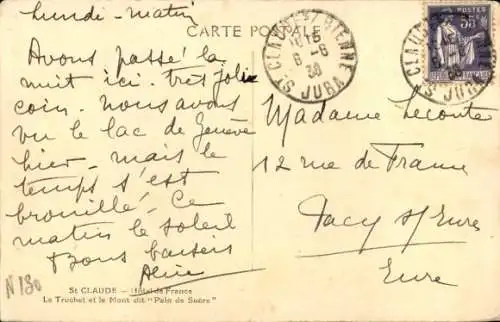 lundi - matin
CARTE POSTALE
Avons passé la
nuit ici. très jolie
coin. nous avons
vu le lac de Genève
hier - mais le
temps s'est
brouillé. Ce
matin le soleil
Bons baisers
Aline
Madame Leconte
12 rue de France
Pacy s/ Eure
Eure
ST CLAUDE S/ BIENNE
6 - 6
38
JURA
POSTES
55c
ST CLAUDE
JURA
N 130
St CLAUDE - Hôtel de France
Le Truchet et le Mont dit "Pain de Sucre"